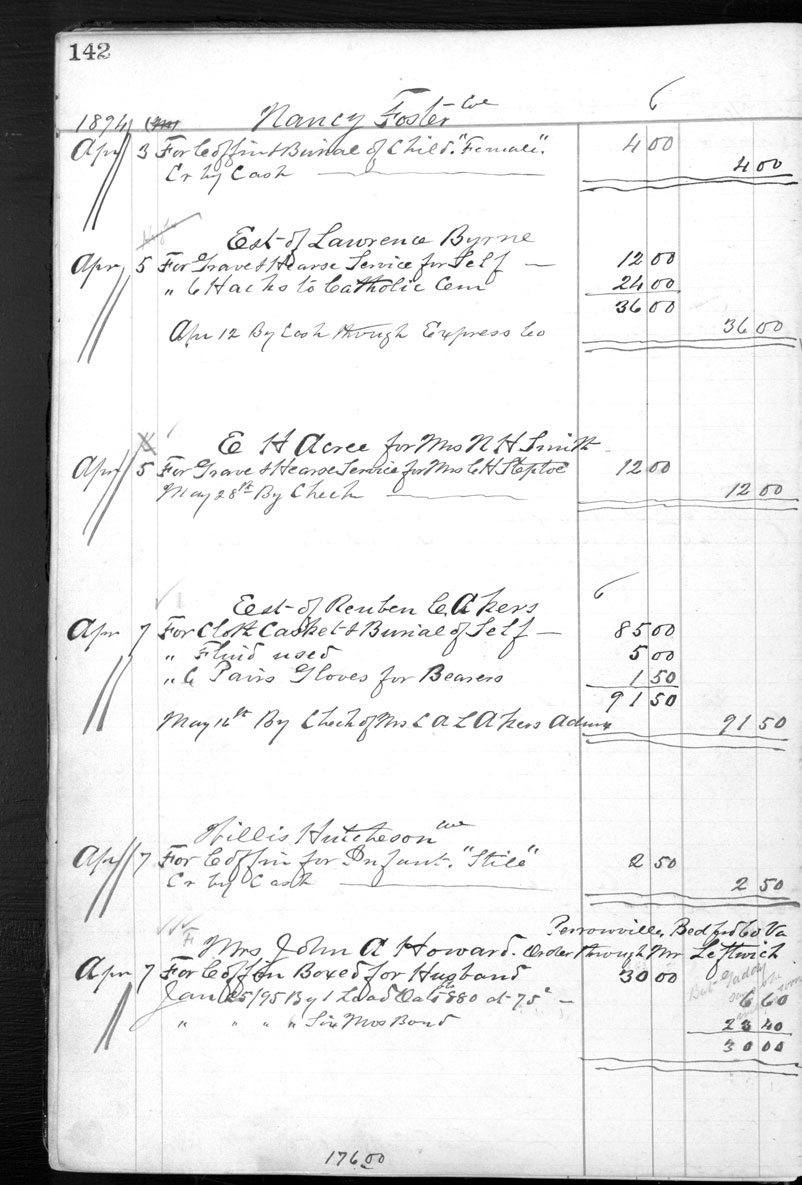 142
1894 Nancy Foster Col 6
Apr 3 For Coffin & Burial of Child. "Female". 4 00
Cr by Cash 4 00
Est of Lawrence Byrne
Apr 5 For Grave & Hearse Service for Self — 12 00
" 6 Hacks to Catholic Cem 24 00
36 00
Apr 12 By Cash through Express Co 36 00
X E H Acree for Mrs N H Smith
Apr 5 For Grave & Hearse Service for Mrs C H Steptoe 12 00
May 28th By Check 12 00
Est of Reuben C Akers 6
Apr 7 For Cloth Casket & Burial of Self — 85 00
" Fluid used 5 00
" 6 Pairs Gloves for Bearers 1 50
91 50
May 16th By Check of Mrs C A L Akers Admx 91 50
Willis Hutcheson Col
Apr 7 For Coffin for Infant. "Still" 2 50
Cr by Cash 2 50
Perrowville, Bedford Co Va
Mrs John A Howard. Order through Mr Leftwich
Apr 7 For Coffin Boxed for Husband 30 00
Jan 25/95 By 1 Load Oats 880 at 75c — 6 60
" " " " Six Mos Bond 23 40
30 00
176.00